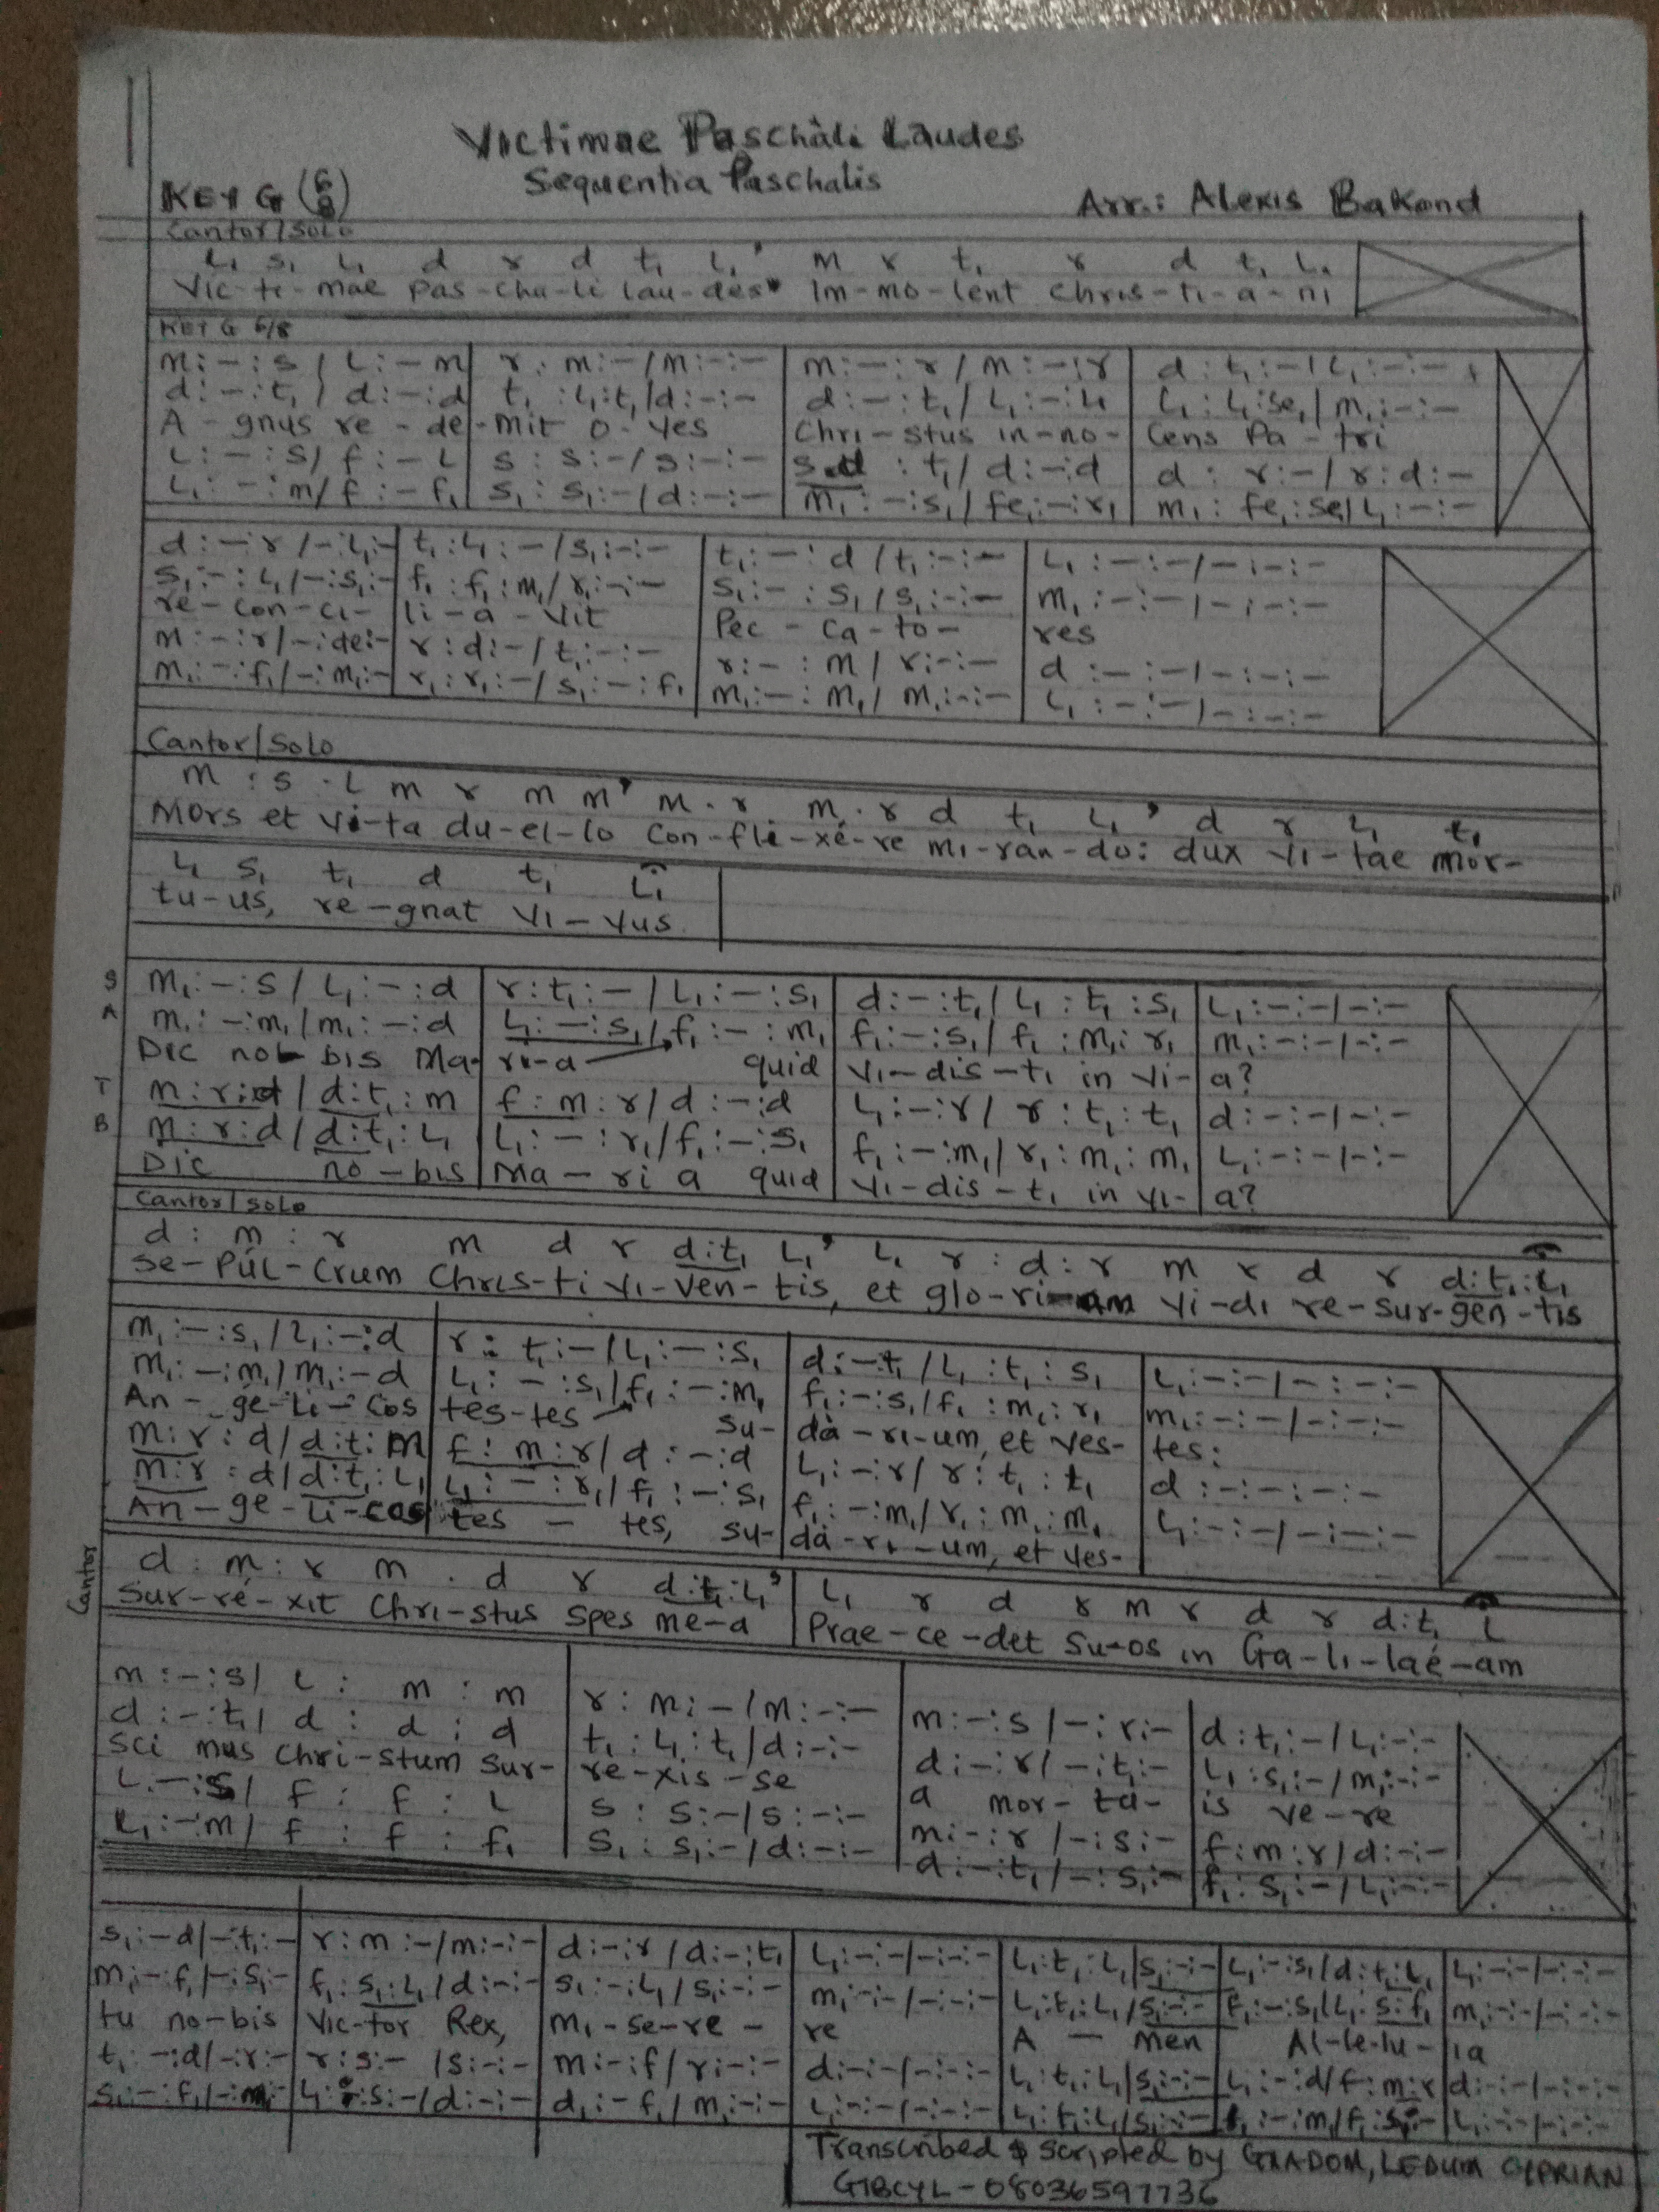 Victimae Paschàli Laudes
Sequentia Paschalis
KEY G (6/8)
Arr.: Alexis Bakond
Cantor/Solo
L₁ s₁ L₁ d r d t₁ L₁' m r t₁ r d t₁ L₁
Vic-ti-mae pas-cha-li lau-des* Im-mo-lent Chris-ti-a-ni
KEY G 6/8
m:-:s / L:-m | r:m:-/m:-:- | m:-:r / m:-:r | d:t₁:-/L₁:-:-
d:-:t₁ / d:-:d | t₁:L₁:t₁/d:-:- | d:-:t₁/ L₁:-:L₁ | L₁:L₁:se₁/ m₁:-:-
A-gnus re-de-mit o-ves | Chri-stus in-no-Cens Pa-tri
L:-:s/ f:-L | s:s:-/s:-:- | : t₁/ d:-:d | d: r:-/ r:d:-
L₁:-:m/ f:-f₁ | s₁:s₁:-/d:-:- | m₁:-:s₁/ fe₁:-:r₁ | m₁: fe₁:se₁/ L₁:-:-
d:-:r /-:L₁:- | t₁:L₁:-/s₁:-:- | t₁:-:d / t₁:-:- | L₁:-:-/-:-:-
s₁:-:L₁/-:s₁:- | f₁:f₁:m₁/ r₁:-:- | s₁:-:s₁ / s₁:-:- | m₁:-:-/-:-:-
re-con-ci-li-a-vit | Pec-ca-to-res
m:-:r/-:de:- | r:d:-/ t₁:-:- | r:-:m / r:-:- | d:-:-/-:-:-
m₁:-:f₁/-:m₁:- | r₁:r₁:-/ s₁:-:f₁ | m₁:-:m₁/ m₁:-:- | L₁:-:-/-:-:-
Cantor/Solo
m : s . L m r m m' m . r m . r d t₁ L₁' d r L₁ t₁
Mors et vi-ta du-el-lo Con-fli-xé-re mi-ran-do: dux vi-tae mor-
L₁ s₁ t₁ d t₁ L₁
tu-us, re-gnat vi-vus
S m₁:-:s / L₁:-:d | r:t₁:-/ L₁:-:s₁ | d:-:t₁/ L₁:t₁:s₁ | L₁:-:-/-:-
A m₁:-:m₁/m₁:-:d | L₁:-:s₁/f₁:-:m₁ | f₁:-:s₁/ f₁:m₁:r₁ | m₁:-:-/-:-
Dic no-bis Ma-ri-a quid vi-dis-ti in vi-a?
T m:r:d / d:t₁:m | f:m:r/d:-:d | L₁:-:r/ r:t₁:t₁ | d:-:-/-:-
B m:r:d/ d:t₁:L₁ | L₁:-:r₁/f₁:-:s₁ | f₁:-:m₁/ r₁:m₁:m₁ | L₁:-:-/-:-
Dic no-bis Ma-ri a quid vi-dis-ti in vi-a?
Cantor/Solo
d : m : r m d r d:t₁ L₁' L₁ r : d : r m r d r d:t₁:L₁
se-Púl-Crum Chris-ti vi-ven-tis, et glo-ri-am vi-di re-sur-gen-tis
m₁:-:s₁ / L₁:-:d | r:t₁:-/L₁:-:s₁ | d:-t₁ / L₁:t₁:s₁ | L₁:-:-/-:-:-
m₁:-:m₁/ m₁:-d | L₁:-:s₁/f₁:-:m₁ | f₁:-:s₁/f₁:m₁:r₁ | m₁:-:-/-:-:-
An-ge-li-cos tes-tes su-dà-ri-um, et ves-tes:
m:r:d/ d:t:m | f:m:r/ d:-:d | L₁:-:r/ r:t₁:t₁ | d:-:-:-:-
m:r:d/d:t₁:L₁ | L₁:-:r₁/ f₁:-:s₁ | f₁:-:m₁/ r₁:m₁:m₁ | L₁:-:-/-:-:-
An-ge-li-cos tes-tes, su-dà-ri-um, et ves-
Cantor
d : m : r m . d r d:t₁:L₁' | L₁ r d r m r d r d:t₁ L
Sur-ré-xit Chri-stus spes me-a | Prae-ce-det su-os in Ga-li-laé-am
m:-:s/ L : m : m | r:m:-/m:-:- | m:-:s /-:r:- | d:t₁:-/L₁:-:-
d:-:t₁/ d : d : d | t₁:L₁:t₁/d:-:- | d:-:r/-:t₁:- | L₁:s₁:-/m₁:-:-
Sci mus Chri-stum Sur-re-xis-se | a mor-tu-is ve-re
L:-:s/ f : f : L | s:s:-/s:-:- | m:-:r /-:s:- | f:m:r/d:-:-
L₁:-:m/ f : f : f₁ | s₁:s₁:-/d:-:- | d:-:t₁/-:s₁:- | f₁:s₁:-/L₁:-:-
s₁:-d/-:t₁:- | r:m:-/m:-:- | d:-:r /d:-:t₁ | L₁:-:-/-:-:- | L₁:t₁:L₁/s₁:-:- | L₁:-:s₁/d:t₁:L₁ | L₁:-:-/-:-:-
m₁:-:f₁/-:s₁:- | f₁:s₁:L₁/d:-:- | s₁:-:L₁/ s₁:-:- | m₁:-:-/-:-:- | L₁:t₁:L₁/s₁:-:- | f₁:-:s₁/L₁:s:f₁ | m₁:-:-/-:-:-
tu no-bis Vic-tor Rex, Mi-se-re-re A-men Al-le-lu-ia
t₁:-:d/-:r:- | r:s:-/s:-:- | m:-:f/ r:-:- | d:-:-/-:-:- | L₁:t₁:L₁/s₁:-:- | L₁:-:d/f:m:r | d:-:-/-:-:-
s₁:-:f₁/-:m₁:- | L₁: :s:-/d:-:- | d₁:-f₁/ m₁:-:- | L₁:-:-/-:-:- | L₁:t₁:L₁/s₁:-:- | :-:m₁/f₁: | L₁:-:-/-:-:-
Transcribed & Scripted by GRADOM, LEDUM CIPRIAN
GIBCYL-08036597736